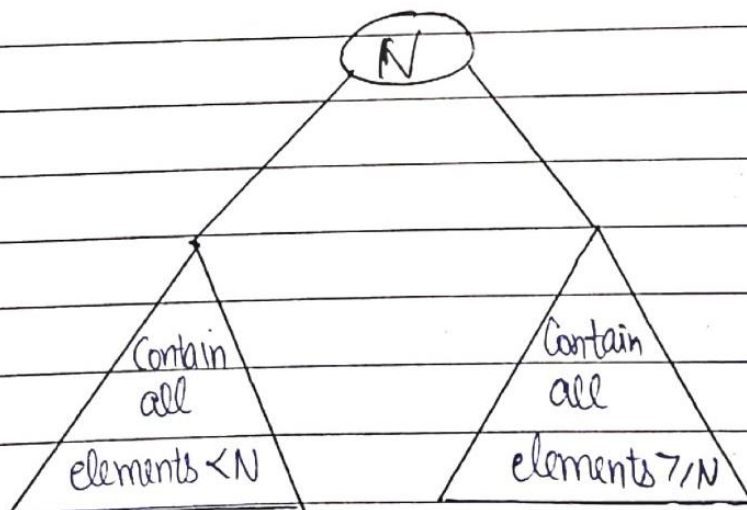 N
Contain
all
elements <N
Contain
all
elements ≥N